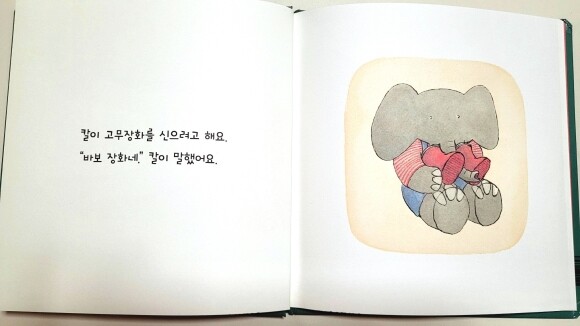 칼이 고무장화를 신으려고 해요.
“바보 장화네.” 칼이 말했어요.